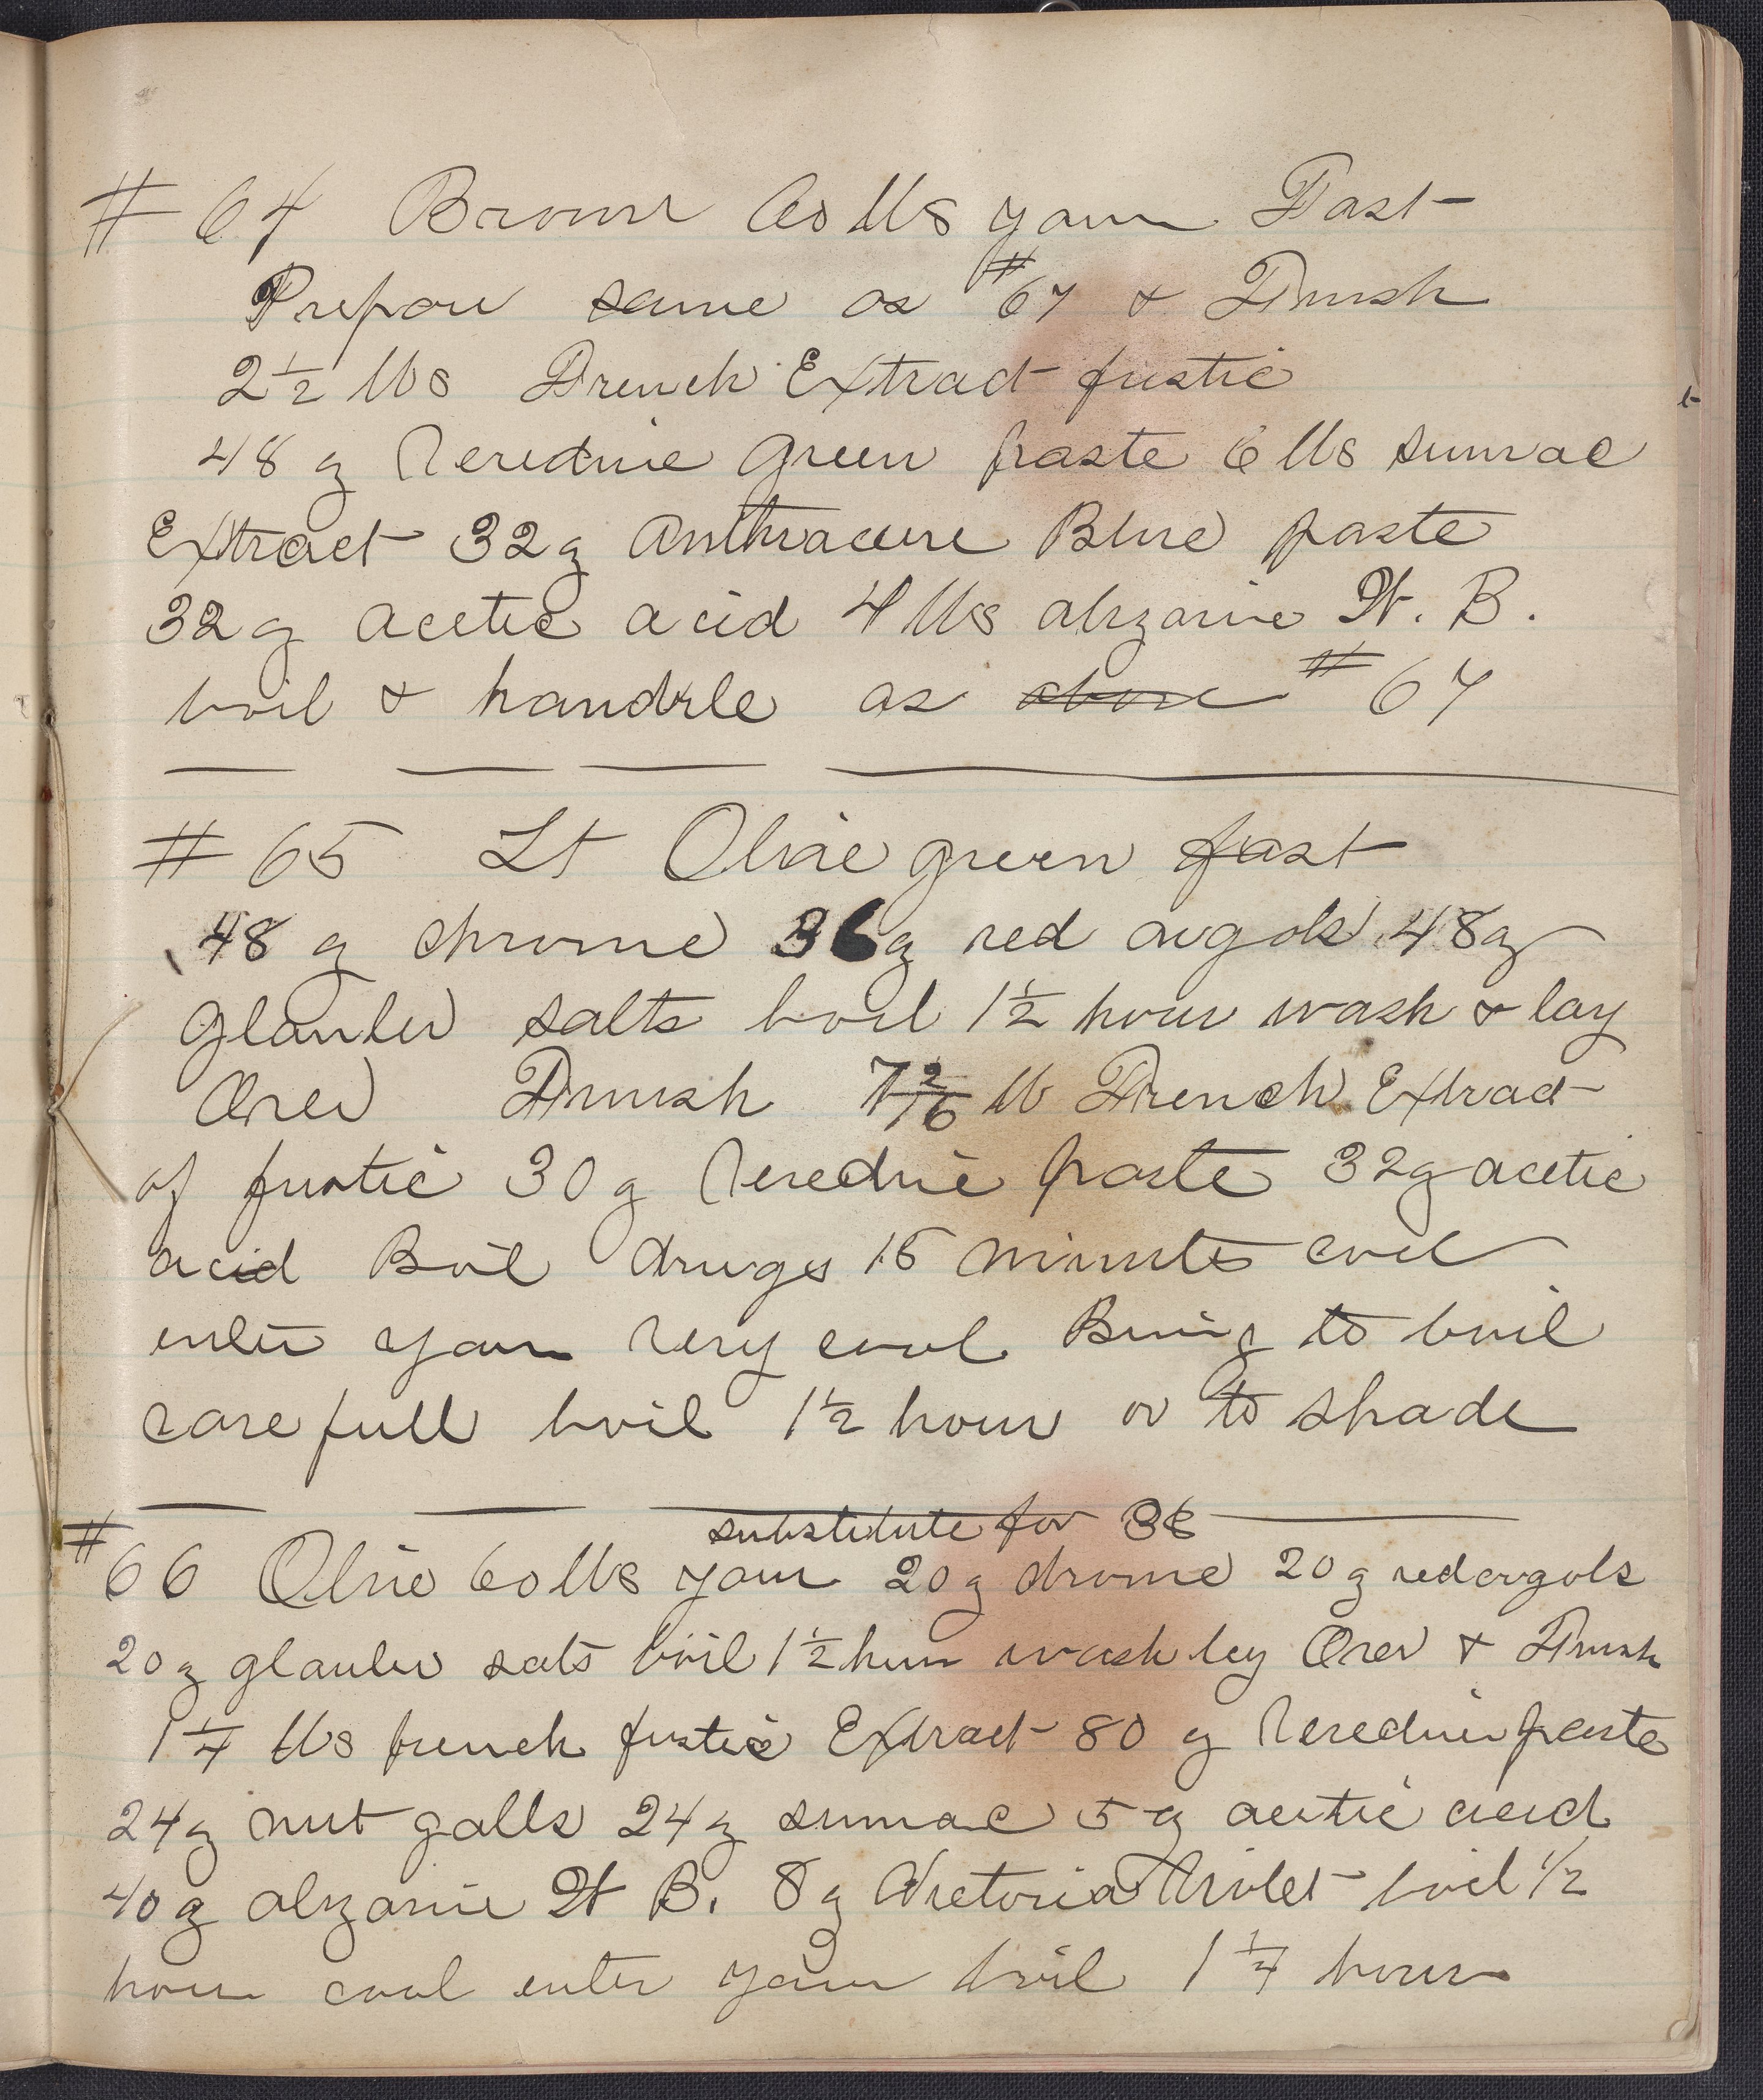 # 64 Brown 60 lbs yarn Fast
Prepare same as #67 & Finish
2 1/2 lbs French Extract fustic
48 g Ceredine green paste 6 lbs sumac
Extract 32 g Anthracene Blue paste
32 g acetic acid 4 lbs alizarine W. B.
boil & handle as above #67
# 65 Lt Olive green fast
48 g chrome 36 g red argols 48 g
glauber salts boil 1 1/2 hour wash & lay
Over Finish lb French Extract
of fustic 30 g Ceredine paste 32 g acetic
acid Boil druges 15 minuts cool
enter yarn very cool Bring to boil
carefull boil 1 1/2 hour or to shade
substitute for 36
#66 Olive 60 lbs yarn 20 g chrome 20 g red argols
20 g glauber salts boil 1 1/2 hour wash lay Over & Finish
1 1/4 lbs french fustic Extract 80 g Ceredine paste
24 g nut galls 24 g sumac 5 g acetic acid
40 g alizarine W B. 8 g Victoria Violet boil 1/2
hour cool enter yarn boil 1 1/4 hour